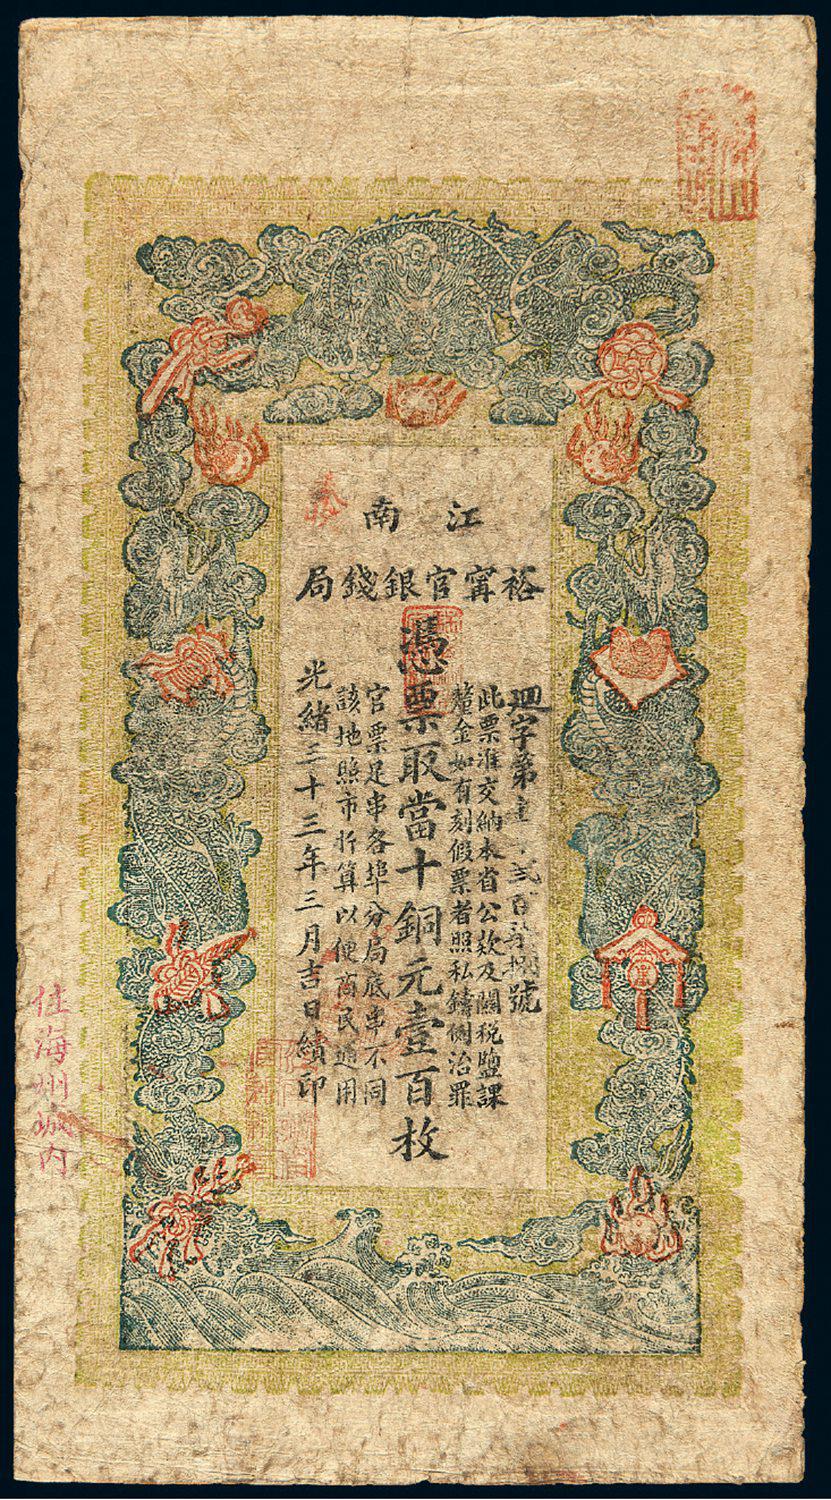 江南
裕甯官銀錢局
字第壹千弍百柒拾捌號
此票准交納本省公欵及關税鹽課
釐金如有刻假票者照私鑄例治罪
憑票取當十銅元壹百枚
官票足串各埠分局底串不同
該地照市折算以便商民通用
光緒三十三年三月吉日續印
住海州城内